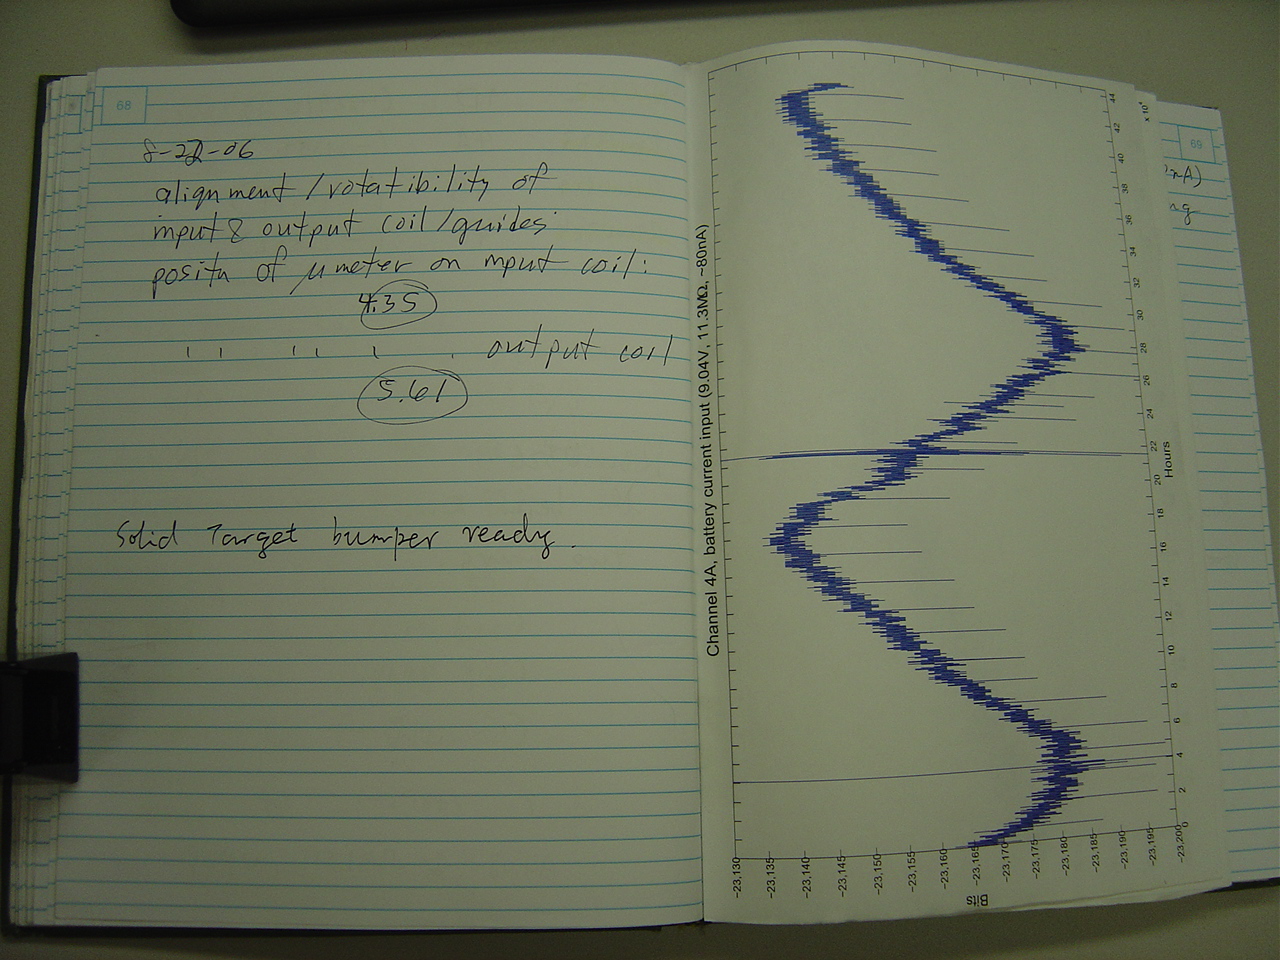 68
8-22-06
alignment/rotatibility of
input & output coil/guides
positn of μmeter on input coil:
4.35
" " " " output coil
5.61
Solid Target bumper ready.
Channel 4A, battery current input (9.04V, 11.3MΩ, ~80nA)
−23,130
−23,135
−23,140
−23,145
−23,150
−23,155
−23,160
−23,165
−23,170
−23,175
−23,180
−23,185
−23,190
−23,195
−23,200
Bits
0 2 4 6 8 10 12 14 16 18 20 22 24 26 28 30 32 34 36 38 40 42 44
x 10⁴
Hours
69
nA)
g